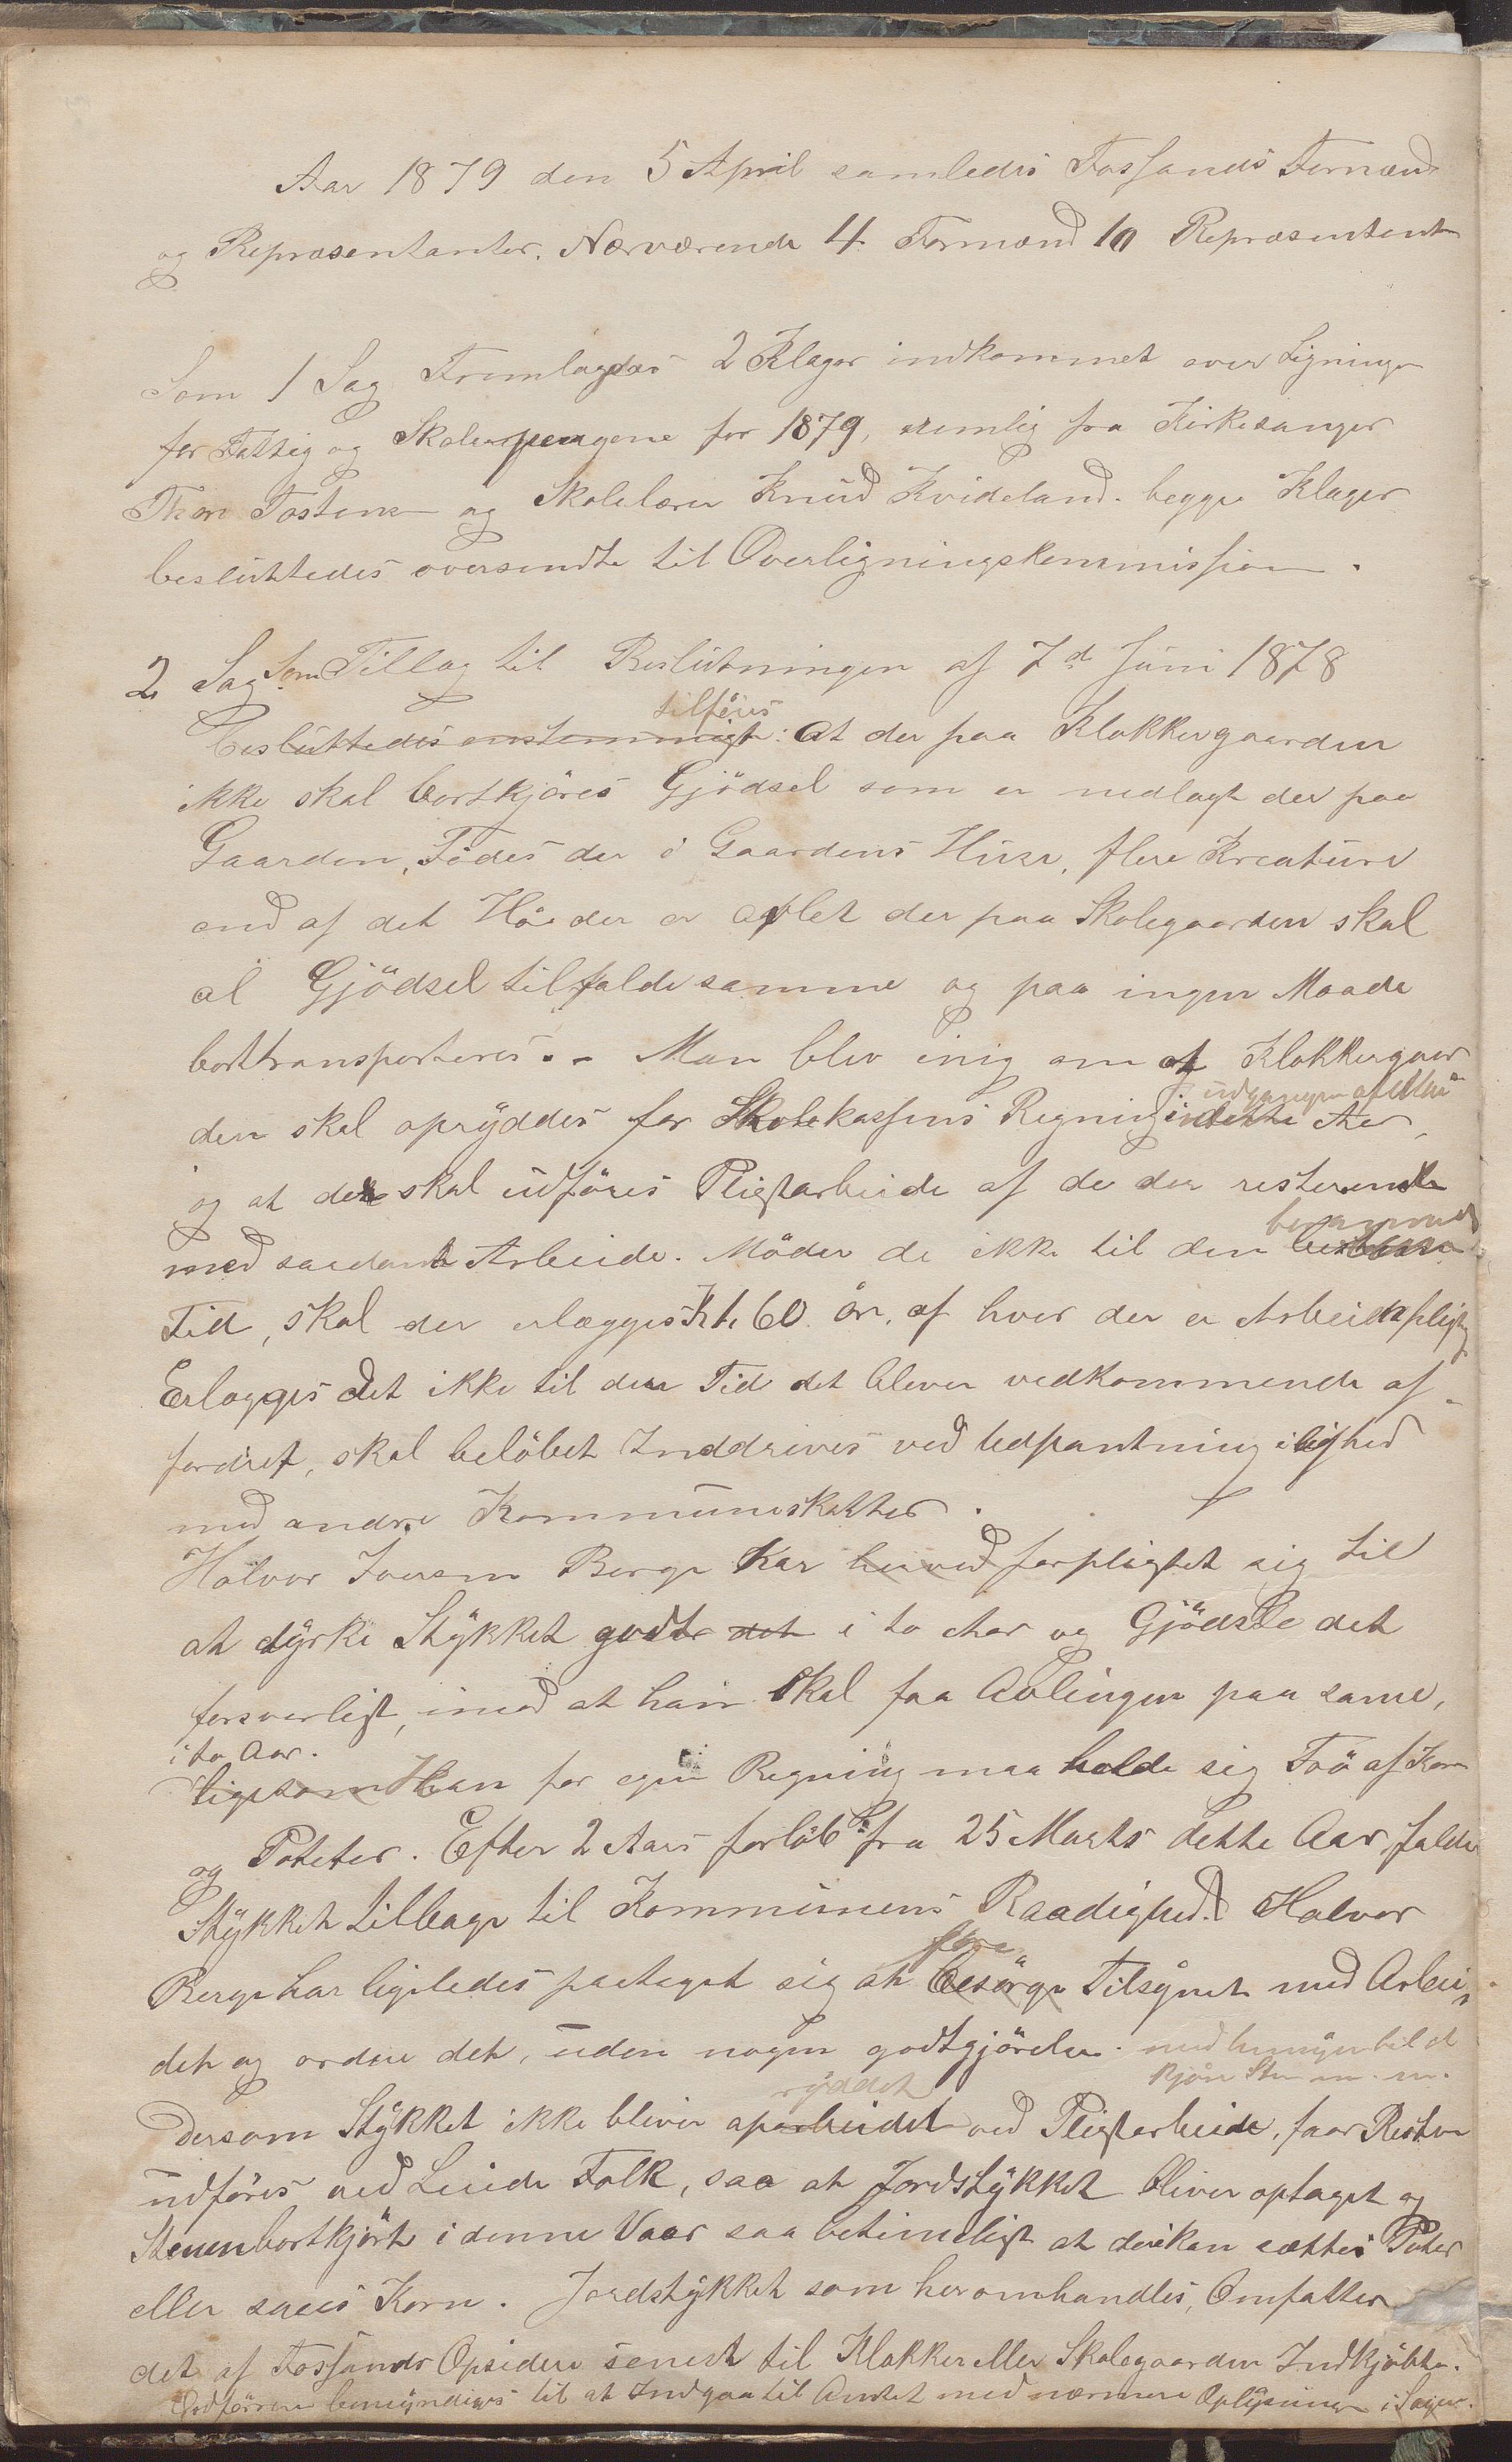 Aar 1879 den 5 April samledes Fossands Formænd
og Repræsentanter. Nærværende 4 Formænd 10 Repræsentant
Som 1 Sag Fremlagdes 2 Klager indkommet over Ligningen
for Fattig og Skolepengene for 1879, nemlig fra Kirkesanger
Thore Tostensen og Skolelærer Knud Kvideland. begge Klager
besluttedes oversendte til Overligningskommissionen.
2 Sag Som Tillæg til Beslutningen af 7d Juni 1878
tilföies
besluttedes enstemmigt: at der paa Klokkergaarden
ikke skal bortkjöres Gjödsel som er nedlagt der paa
Gaarden, Födes der i Gaardens Huse, flere Kreature
end af det Höe der er avlet der paa Skolegaarden skal
al Gjödsel tilfalde samme og paa ingen Maade
borttransporteres. - Man blev enig om at Klokkergaar
udgangen af dette
den skal opryddes for Skolekassens Regning i dette Aar,
og at der skal udföres Pligtarbeide af de der resterende
med saadant Arbeide. Möder de ikke til den
Tid, skal der erlægges Kr 1. 60 ör. af hver der er Arbeidspligtig
Erlægges det ikke til den Tid det bliver vedkommende af-
fordret, skal belöbet Inddrives ved Udpantning i lighed
med andre Kommuneskatter.
Halvor Iversen Berge har herved forpligtet sig til
at dyrke Stykket godt det i to Aar og Gjödsle det
forsvarligt, imod at han skal faa Avlingen paa same,
i to Aar.
ligesom Han for egen Regning maa holde sig Frö af Korn
og Poteter. Efter 2 Aars forlöb fra 25 Marts dette Aar, falder
Stykket tilbage til Kommunens Raadighed. Halvor
före
Berge har ligeledes paataget sig at besörge Tilsynet med Arbei-
det og ordne det, uden nogen godtgjörelse. med hensyn til at
kjöre Sten m. m.
ryddet
Dersom Stykket ikke bliver oparbeidet ved Pligtarbeide, faar Resten
udföres ved Leiede Folk, saa at Jordstykket bliver optaget og
Stenen bortkjört i denne Vaar saa betimeligt at der kan sættes Poteter
eller saaes Korn. Jordstykket som her omhandles, Omfatter
det af Fossands Opsidere senest til Klokker eller Skolegaarden Indkjöbte.
Ordföreren bemyndiges til at Indgaa til Amtet med nærmere Oplysninger i Sagen.